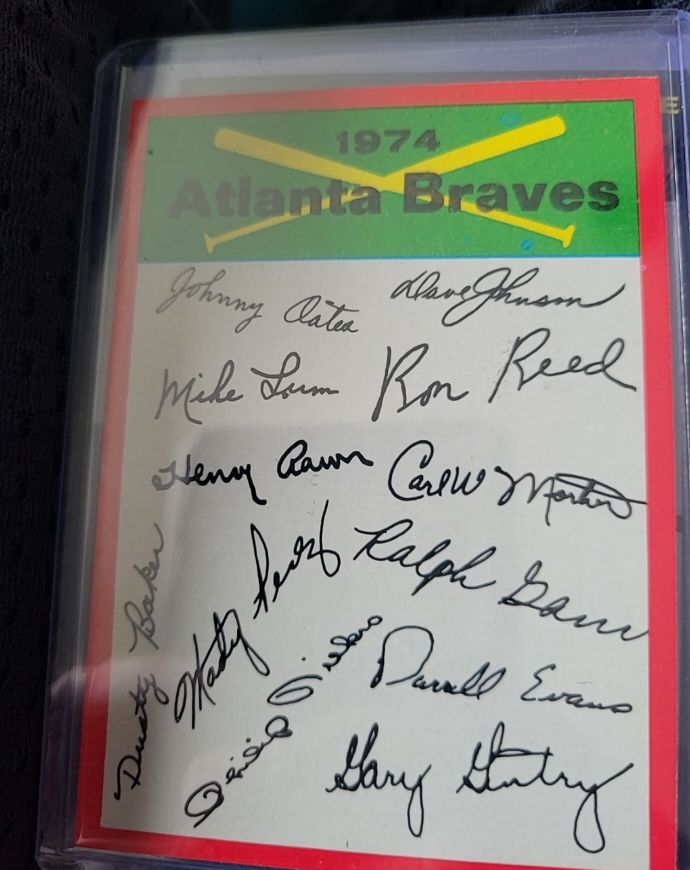 1974
Atlanta Braves
Johnny Oates Dave Johnson
Mike Lum Ron Reed
Henry Aaron Carl W Morton
Dusty Baker Marty Perez Ralph Garr
Darrell Evans
Gary Gentry